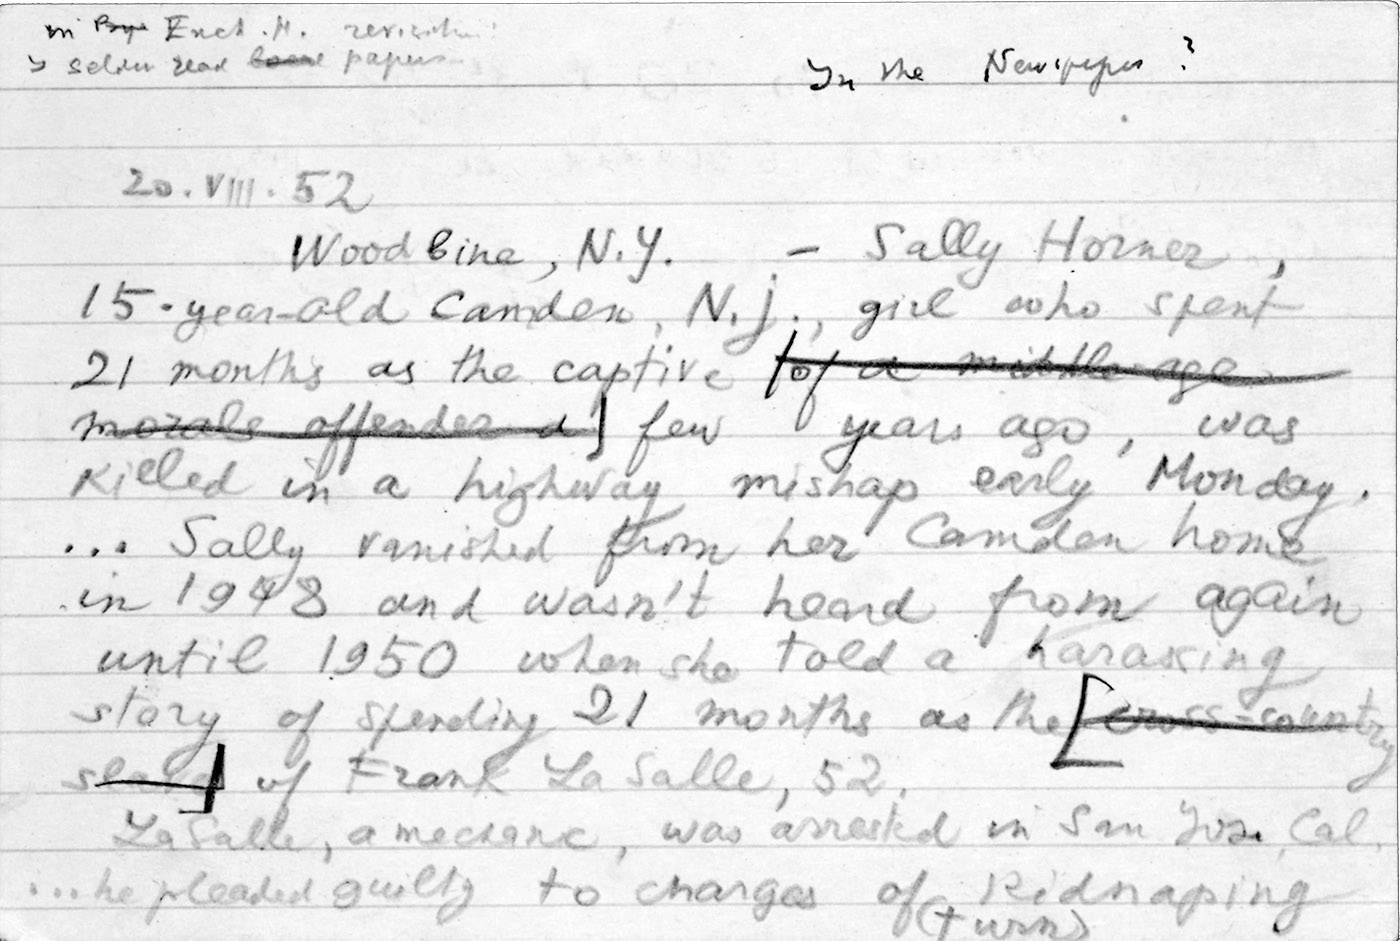 in Ench. H. revisit
read papers
In the Newspaper?
20.VIII.52
Woodbine, N.Y. – Sally Horner,
15-year-old Camden, N.J., girl who spent
21 months as the captive [of a middle-age
morals offender a] few years ago, was
killed in a highway mishap early Monday.
... Sally vanished from her Camden home
in 1948 and wasn't heard from again
until 1950 when she told a harassing
story of spending 21 months as the [cross-country
slave] of Frank La Salle, 52.
LaSalle, a mechanic, was arrested in San Jose, Cal.
... he pleaded guilty to charges of kidnaping
(turn)